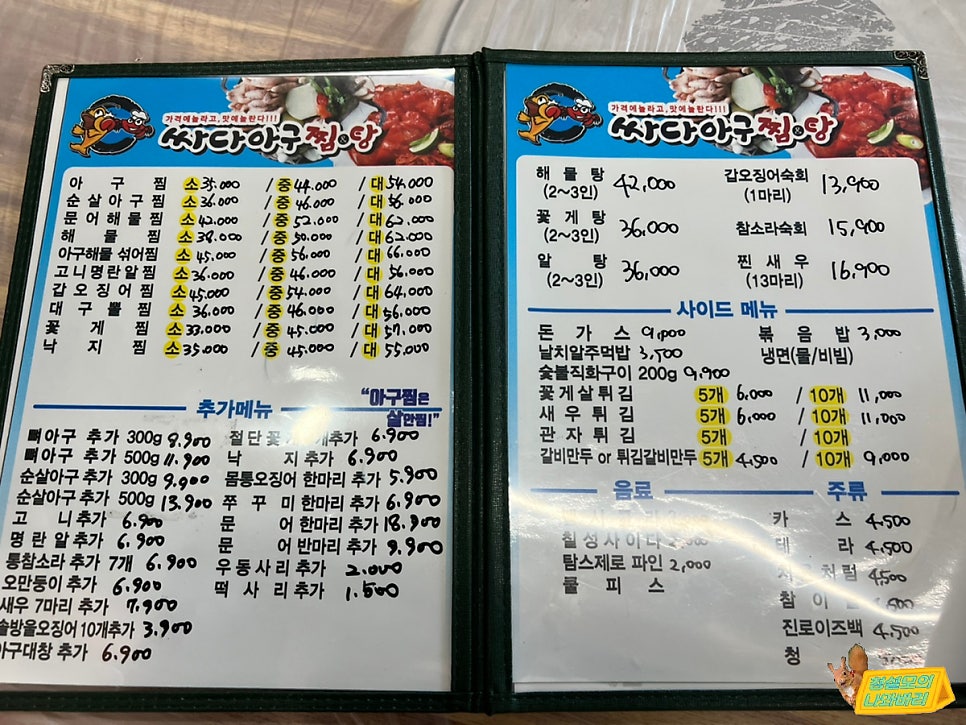 가격에놀라고, 맛에놀란다!!!
싸다아구찜&탕
아구찜 소 35.000 / 중 44.000 / 대 54.000
순살아구찜 소 36.000 / 중 46.000 / 대 56.000
문어해물찜 소 42.000 / 중 52.000 / 대 62.000
해물찜 소 38.000 / 중 50.000 / 대 62.000
아구해물 섞어찜 소 45.000 / 중 56.000 / 대 66.000
고니명란알찜 소 36.000 / 중 46.000 / 대 56.000
갑오징어찜 소 45.000 / 중 54.000 / 대 64.000
대구뽈찜 소 36.000 / 중 46.000 / 대 56.000
꽃게찜 소 33.000 / 중 45.000 / 대 57.000
낙지찜 소 35.000 / 중 45.000 / 대 55.000
추가메뉴
"아구찜은
살만찜!"
뼈아구 추가 300g 8.900
뼈아구 추가 500g 11.900
순살아구 추가 300g 9.900
순살아구 추가 500g 13.900
고니추가 6.900
명란알추가 6.900
통참소라 추가 7개 6.900
오만둥이 추가 6.900
새우 7마리 추가 7.900
솔방울오징어 10개추가 3.900
아구대창 추가 6.900
절단꽃 개추가 6.900
낙지추가 6.900
몸통오징어 한마리 추가 5.900
쭈꾸미 한마리 추가 6.900
문어한마리 추가 18.900
문어반마리 추가 9.900
우동사리추가 2.000
떡사리추가 1.500
가격에놀라고, 맛에놀란다!!!
싸다아구찜&탕
해물탕 (2~3인) 42,000
꽃게탕 (2~3인) 36,000
알탕 (2~3인) 36,000
갑오징어숙회 (1마리) 13,900
참소라숙회 15,900
찐새우 (13마리) 16,900
사이드 메뉴
돈가스 9,900 볶음밥 3,000
날치알주먹밥 3,500 냉면(물/비빔)
숯불직화구이 200g 9,900
꽃게살튀김 5개 6,000 / 10개 11,000
새우튀김 5개 6,000 / 10개 11,000
관자튀김 5개 / 10개
갈비만두 or 튀김갈비만두 5개 4,500 / 10개 9,000
음료
칠성사이다 2,000
탐스제로 파인 2,000
물피스
주류
카스 4,500
테라 4,500
처럼 4,500
참이 4,500
진로이즈백 4,500
청
청설모의
나와버림